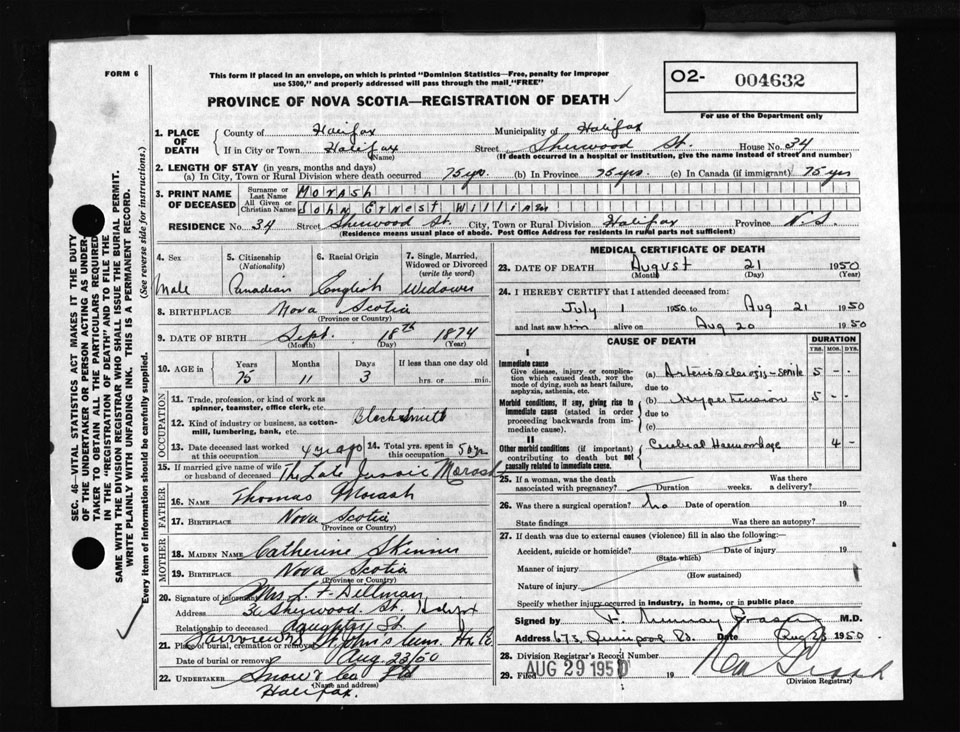 FORM 6
This form if placed in an envelope, on which is printed "Dominion Statistics—Free, penalty for improper
use $300," and properly addressed will pass through the mail "FREE"
02- 004632
For use of the Department only
PROVINCE OF NOVA SCOTIA—REGISTRATION OF DEATH
1. PLACE OF DEATH { County of Halifax Municipality of Halifax
If in City or Town Halifax (Name) Street Sherwood St. House No. 34
(If death occurred in a hospital or institution, give the name instead of street and number)
2. LENGTH OF STAY (in years, months and days)
(a) In City, Town or Rural Division where death occurred 75 yrs. (b) In Province 75 yrs. (c) In Canada (if immigrant) 75 yrs
3. PRINT NAME OF DECEASED { Surname or Last Name Morash
All Given or Christian Names John Ernest William
RESIDENCE No. 34 Street Sherwood St. City, Town or Rural Division Halifax Province N.S.
(Residence means usual place of abode. Post Office Address for residents in rural parts not sufficient)
4. Sex Male
5. Citizenship (Nationality) Canadian
6. Racial Origin English
7. Single, Married, Widowed or Divorced (write the word) Widower
8. BIRTHPLACE Nova Scotia
(Province or Country)
9. DATE OF BIRTH Sept. 18th 1874
(Month) (Day) (Year)
10. AGE in { Years 75 Months 11 Days 3 If less than one day old
hrs. or min.
OCCUPATION
11. Trade, profession, or kind of work as
spinner, teamster, office clerk, etc. Blacksmith
12. Kind of industry or business, as cotton-
mill, lumbering, bank, etc.
13. Date deceased last worked at this occupation 4 yr ago 14. Total yrs. spent in this occupation 50 yrs
15. If married give name of wife
or husband of deceased The Late Jessie Morash
FATHER
16. NAME Thomas Morash
17. BIRTHPLACE Nova Scotia
(Province or Country)
MOTHER
18. MAIDEN NAME Catherine Skinner
19. BIRTHPLACE Nova Scotia
(Province or Country)
20. Signature of informant Mrs L. F. Dellman
Address 34 Sherwood St. Halifax
Relationship to deceased daughter
21. Place of burial, cremation or removal Fairview St John's Cem. Hx Co.
Date of burial or removal Aug. 23/50
22. UNDERTAKER Snow & Co Ltd
(Name and address)
Halifax.
MEDICAL CERTIFICATE OF DEATH
23. DATE OF DEATH August 21 1950
(Month) (Day)
24. I HEREBY CERTIFY that I attended deceased from:
July 1 1950 to Aug 21 1950
and last saw him alive on Aug 20 1950
CAUSE OF DEATH
DURATION
YRS. MOS. DYS.
I
Immediate cause
Give disease, injury or complica-
tion which caused death, not the
mode of dying, such as heart failure,
asphyxia, asthenia, etc.
(a) Arteriosclerosis - senile 5 - -
due to
Morbid conditions, if any, giving rise to
immediate cause (stated in order
proceeding backwards from im-
mediate cause).
(b) Hypertension 5 - -
due to
(c)
II
Other morbid conditions (if important)
contributing to death but not
causally related to immediate cause.
Cerebral Hemorrhage 4 -
25. If a woman, was the death
associated with pregnancy? Duration weeks. Was there
a delivery?
26. Was there a surgical operation? no Date of operation 19
State findings Was there an autopsy?
27. If death was due to external causes (violence) fill in also the following:
Accident, suicide or homicide? (State which) Date of injury 19
Manner of injury (How sustained)
Nature of injury
Specify whether injury occurred in industry, in home, or in public place
Signed by F. Murray Fraser M.D.
Address 673 Quinpool Rd. Date Aug 23 1950
28. Division Registrar's Record Number
29. Filed AUG 29 1950 19
(Division Registrar)
SEC. 46—VITAL STATISTICS ACT MAKES IT THE DUTY
OF THE UNDERTAKER OR PERSON ACTING AS UNDER-
TAKER TO OBTAIN ALL THE PARTICULARS REQUIRED
IN THE "REGISTRATION OF DEATH" AND TO FILE THE
SAME WITH THE DIVISION REGISTRAR WHO SHALL ISSUE THE BURIAL PERMIT.
WRITE PLAINLY WITH UNFADING INK. THIS IS A PERMANENT RECORD.
Every item of information should be carefully supplied. (See reverse side for instructions.)